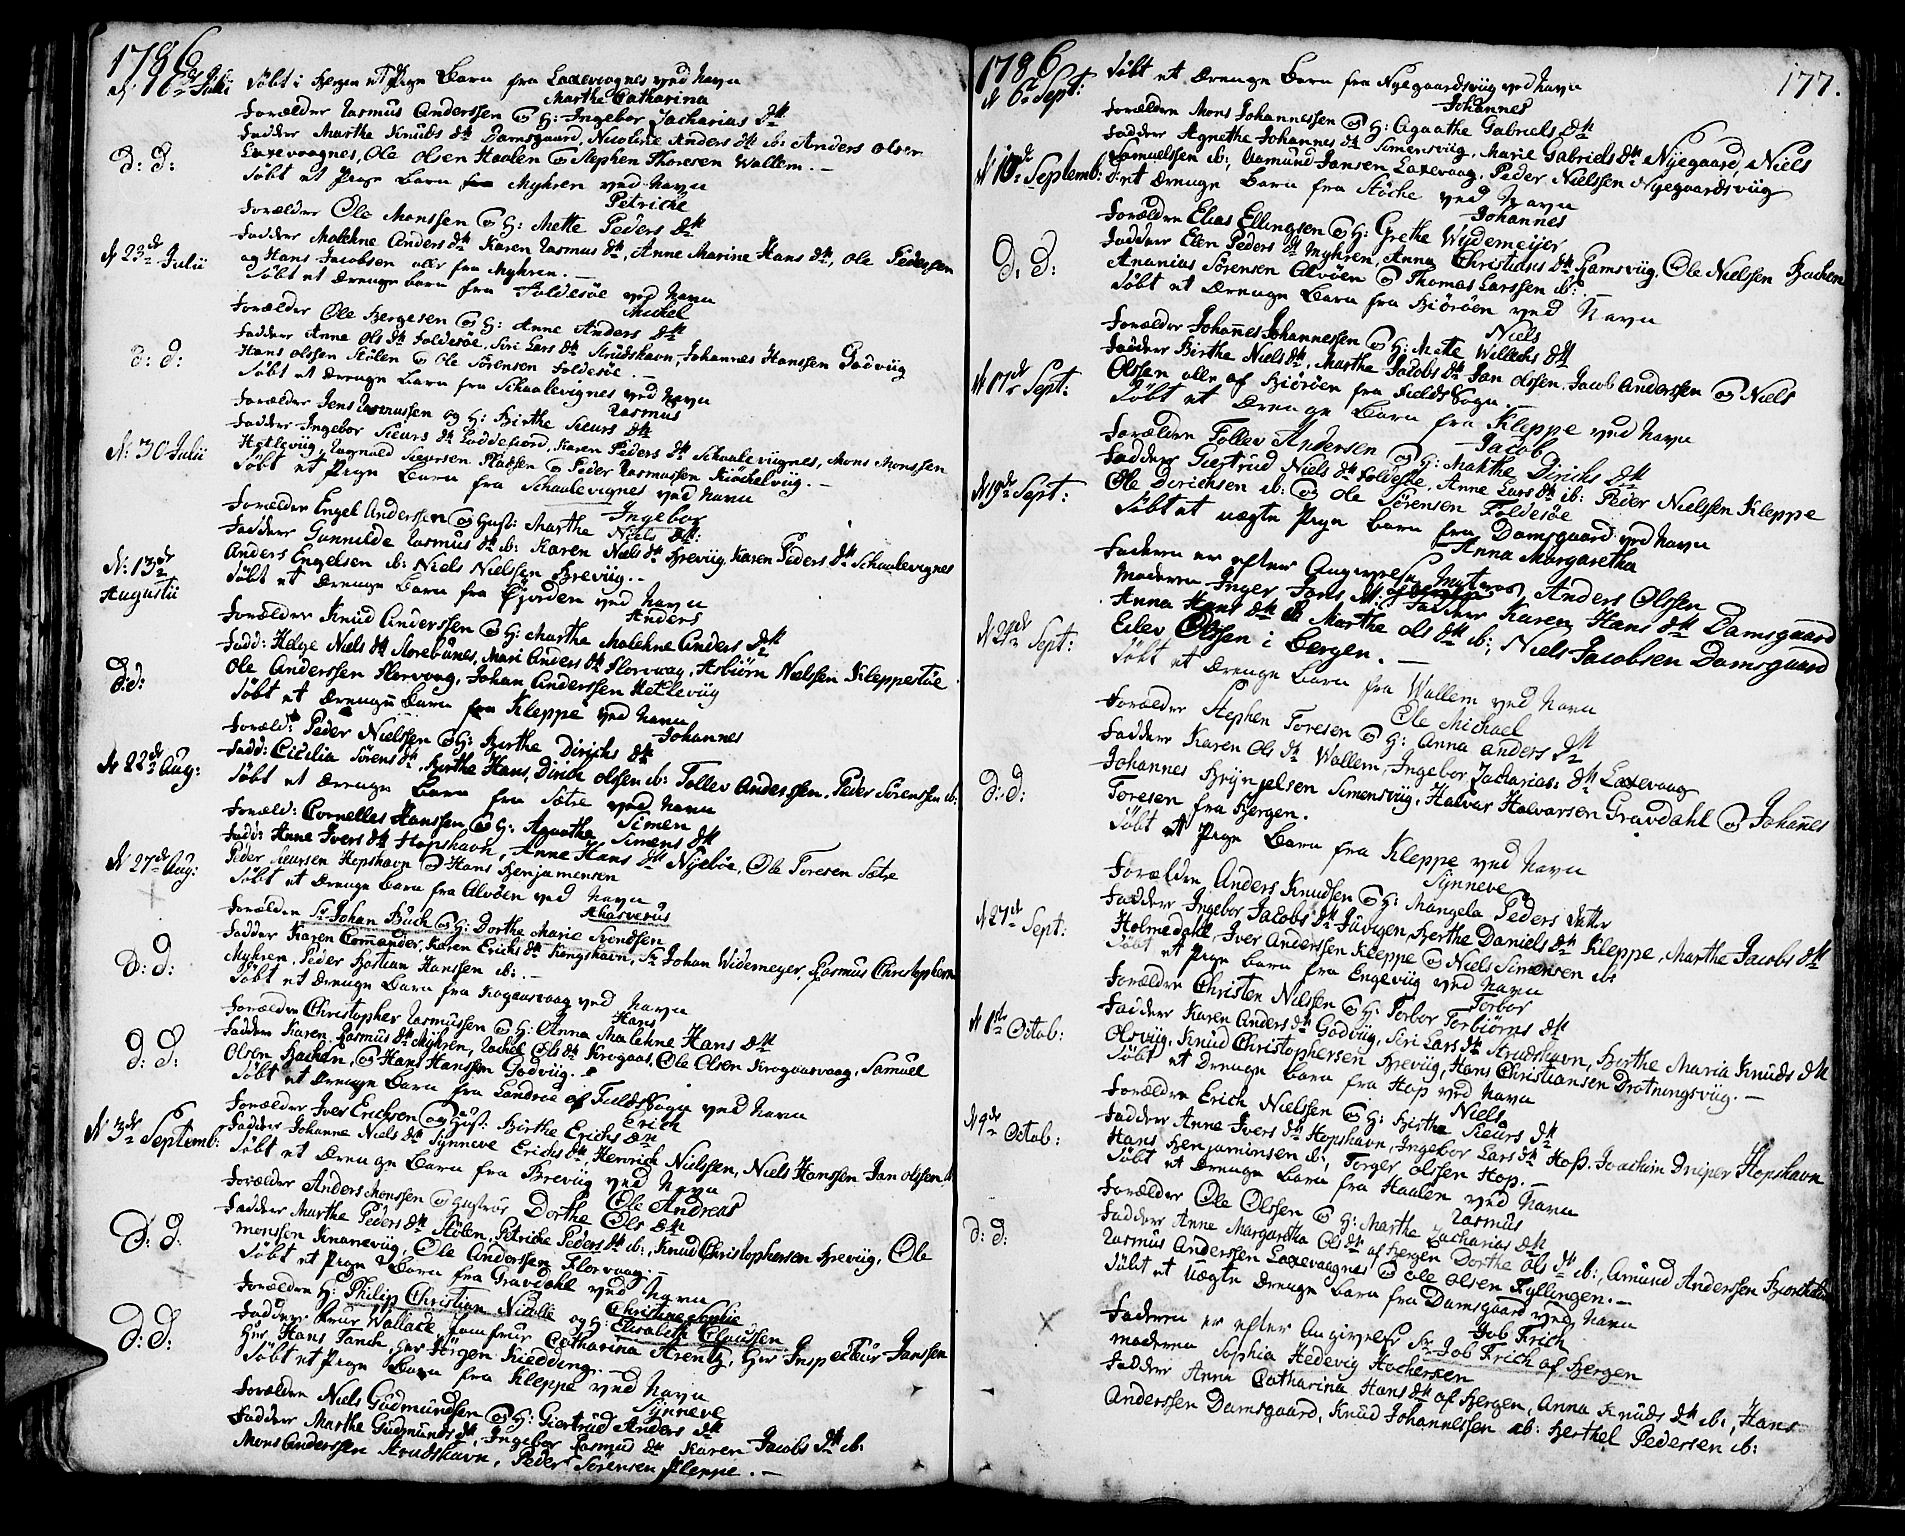 1786
d: 16de Julii Døbt i Bergen et Pige Barn fra Laxevaagnes ved Navn
Marthe Catharina
Forældre Rasmus Anderssen og H: Ingebor Zacharias Dtt
Fadder Marthe Knuds Dtt Damsgaard, Nicoline Anders Dtt ib: Anders Olsen
Laxevaagnes, Ole Olsen Haalen og Stephen Thoresen Wallem. —
D: D: Døbt et Pige Barn fra Myhren ved Navn
Petriche
Forældre Ole Monssen og H: Mette Peders Dtt
Fadder Malehne Anders Dtt Karen Rasmus Dtt, Anne Marine Hans Dtt, Ole Pedersen
og Hans Jacobsen alle fra Myhren. —
N 23de Julii Døbt et Drenge Barn fra Foldesøe ved Navn
Michel
Forældre Ole Bergesen og H: Anne Anders Dtt
Fadder Anne Ols Dtt Foldesøe, Siri Lars Dtt Strudshavn, Johannes Hanssen Godviig
Hans Olssen Stølen og Ole Sørensen Foldesøe. —
D: D: Døbt et Drenge Barn fra Schaalevignes ved Navn
Rasmus
Forældre Jens Rasmussen og H: Birthe Sieurs Dtt
Fadder Ingebor Sieurs Dtt Loddefiord, Karen Peders Dtt Schaaleviignes, Mons Monssen
Hetleviig, Ragnald Sieursen Pladsen og Peder Rasmussen Kiøchelviig. —
N: 30 Julii Døbt et Pige Barn fra Schaalevignes ved Navn
Ingebor
Forældre Engel Anderssen og Hust: Marthe Niels Dtt:
Fadder Gunnilde Rasmus Dtt ib: Karen Niels Dtt Breviig Karen Peders Dtt Schaalevignes
Anders Engelsen ib: Niels Nielssen Breviig. —
N: 13de Augustii Døbt et Drenge Barn fra Gjorden ved Navn
Anders
Forældre Knud Anderssen og H: Marthe Malehne Anders Dtt
Fadd: Helge Niels Dtt Storebunes, Mari Anders Dtt Florvaag, Asbiørn Nielssen Kleppestøe
Ole Anderssen Florvaag, Johan Anderssen Hetleviig
D: d: Døbt et Drenge Barn fra Kleppe ved Navn
Johannes
Foræld: Peder Nielssen og H: Birthe Dirichs Dtt
Fadd: Cicilia Sørens Dtt, Birthe Hans, Dirich Olssen ib: Tollev Anderssen, Peder Sørenssen ib:
N 22de Aug: Døbt et Drenge Barn fra Sætre ved Navn
Simen
Foræld: Cornelles Hanssen og H: Agaathe Simens Dtt
Fadd: Anne Ivers Dtt Hopshavn, Anne Hans Dtt Nyebøe, Ole Toresen Sætre
Peder Sieursen Hopshavn og Hans Benjamensen
N 27de Aug: Døbt et Drenge Barn fra Alvøen ved Navn
Ahasverus
Forældre Sr Johan Buch og H: Dorthe Marie Svendsen
Fadder Karen Commander, Karen Erichs Dtt Kongshavn, Sr Johan Widemeyer, Rasmus Christophersen
Myhren, Peder Bastian Hanssen ib: —
D: D: Døbt et Drenge Barn fra Krogaasvaag ved Navn
Hans
Forældre Christopher Rasmussen og H: Anna Malehne Hans Dtt
Fadder Karen Rasmus Dtt Myhren, Rachel Ols Dtt Krogaas, Ole Olsen Krogaasvaag, Samuel
Olsen Bachen, og Hans Hanssen Godviig. —
D: D: Døbt et Drenge Barn fra Landroe af Fields Sogn ved Navn
Erich
Forældre Iver Erichsen og Hust: Birthe Erichs Dtt
Fadder Johanne Niels Dtt Synneve Erichs Dtt, Henrich Nielssen, Niels Hanssen Jan Olssen ib.
N 3de Septemb: Døbt et Drenge Barn fra Breviig ved Navn
Ole Andreas
Forældre Anders Monssen og Hustroe Dorthe Ols Dtt
Fadder Marthe Peders Dtt Stølen, Petriche Peders Dtt ib:, Knud Christophersen Breviig, Ole
Monssen Knareviig, Ole Anderssen Florvaag. —
D: D: Døbt et Pige Barn fra Gravdahl ved Navn
Christine Sophie
Forældre H: Philip Christian Nidolle og H: Elisabeth Clausen
Fadder Frue Wallace Jomfrue Catharina Arentz, Her Inspecteur Janssen
Her Hans Tanch, Her Jørgen Kiedding. —
D: D: Døbt et Pige Barn fra Kleppe ved Navn
Synneve
Forældre Niels Gudmundsen og H: Giertrud Anders Dtt
Fadder Marthe Gudmunds Dtt, Ingebor Rasmus Dtt Karen Jacobs Dtt ib:
Mons Anderssen Strudshavn, Peder Sørensen Kleppe. —
1786 177.
N 6te Sept: Døbt et Drenge Barn fra Nyegaardsviig ved Navn
Johannes
Forældre Mons Johannessen og H: Agaathe Gabriels Dtt
Fadder Agnethe Johannes Dtt Simensviig, Marie Gabriels Dtt Nyegaard, Niels
Samuelssen ib:, Aamund Jansen Laxevaag, Peder Nielssen Nyegaardsviig
N 10de Septemb: Døbt et Drenge Barn fra Støche ved Navn
Johannes
Forældre Elias Ellingsen og H: Grethe Wydemeijer
Fadder Elen Peders Dtt Myhren, Anna Christians Dtt Ramsviig, Ole Nielssen Bachen
Ananias Sørensen Alvøen og Thomas Larssen ib: —
D: D: Døbt et Drenge Barn fra Biørøen ved Navn
Niels
Forældre Johannes Johannessen og H: Mette Willichs Dtt
Fadder Birthe Niels Dtt, Marthe Jacobs Dtt Jan Olssen, Jacob Anderssen og Niels
Olssen alle af Biørøen fra Fields Sogn. —
N 17de Sept: Døbt et Drenge Barn fra Kleppe ved Navn
Jacob
Forældre Tollev Andersen og H: Marthe Dirichs Dtt
Fadder Giertrud Niels Dtt Foldesøe, Anne Lars Dtt ib: Peder Nielssen Kleppe
Ole Dirichsen ib: og Ole Sørensen Foldesøe
N 19de Sept: Døbt et uægte Pige Barn fra Damsgaard ved Navn
Anna Margaretha
Faderen er efter Angivelse Anders Olssen
Moderen Inger Jans Dtt Fadder Karen Hans Dtt Damsgaard
Anna Hans Dtt ib Marthe Ols Dtt ib:, Niels Jacobsen Damsgaard
Eilev Olssen i Bergen. —
N 24de Sept: Døbt et Drenge Barn fra Wallem ved Navn
Ole Michael
Forældre Stephen Toresen og H: Anna Anders Dtt
Fadder Karen Ols Dtt Wallem, Ingebor Zacharias: Dtt Laxevaag
Johannes Brynjelsen Simensviig, Halvar Halvarsen Gravdahl og Johannes
Toresen fra Bergen.
D: D: Døbt et Pige Barn fra Kleppe ved Navn
Synneve
Forældre Anders Knudsen og H: Mangela Peders Datter
Fadder Ingebor Jacobs Dtt Juvigen, Berthe Daniels Dtt Kleppe, Marthe Jacobs Dtt
Holmedahl, Iver Anderssen Kleppe og Niels Simensen ib:
N 27de Sept: Døbt et Pige Barn fra Engeviig ved Navn
Torbor
Forældre Christen Nilssen og H: Torbor Torbiørns Dtt
Fadder Karen Anders Dtt Godviig, Siri Lars Dtt Strudshavn, Birthe Maria Knuds Dtt
Olsviig, Knud Christophersen Breviig, Hans Christiansen Drotningsviig. —
N 1ste Octob: Døbt et Drenge Barn fra Hop ved Navn
Niels
Forældre Erich Nielssen og H: Birthe Sieurs Dtt
Fadder Anne Ivers Dtt Hopshavn, Ingebor Lars Dtt Hop. Joachim Dreper Hopshavn
Hans Benjaminsen ib:, Torger Olssen Hop. —
N 9de Octob: Døbt et Drenge Barn fra Haalen ved Navn
Rasmus
Forældre Ole Olssen og H: Marthe Zacharias Dtt
Fadder Anne Margaretha Ols Dtt af Bergen Dorthe Ols Dtt ib:, Amund Anderssen
Rasmus Anderssen Laxevaagnes og Ole Olsen Fyllingen. —
D: D: Døbt et Uægte Drenge Barn fra Damsgaard ved Navn
Job Frich
Faderen er efter Angivelse Sr Job Frich af Bergen
Moderen Sophia Hedevig Hochersen
Fadder Anna Catharina Hans Dtt af Bergen, Anna Knuds Dtt ib:, Hans
Anderssen Damsgaard, Knud Johannessen ib: Berthel Pedersen ib: